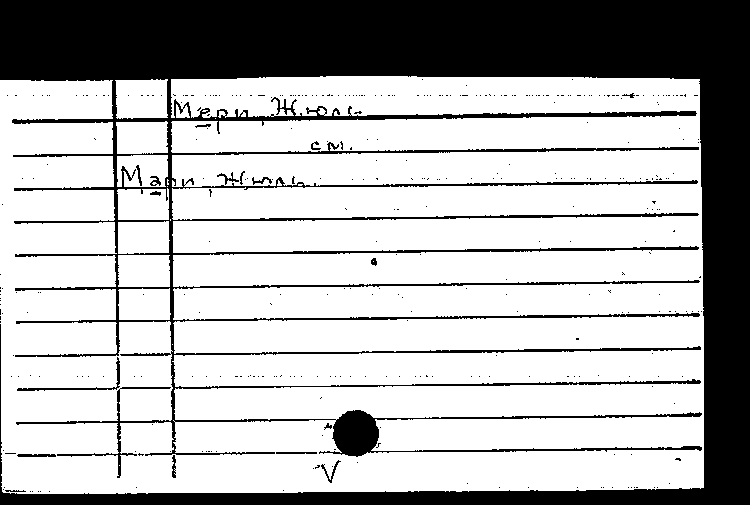 Мери, Жюль
см.
Мари, Жюль.
V